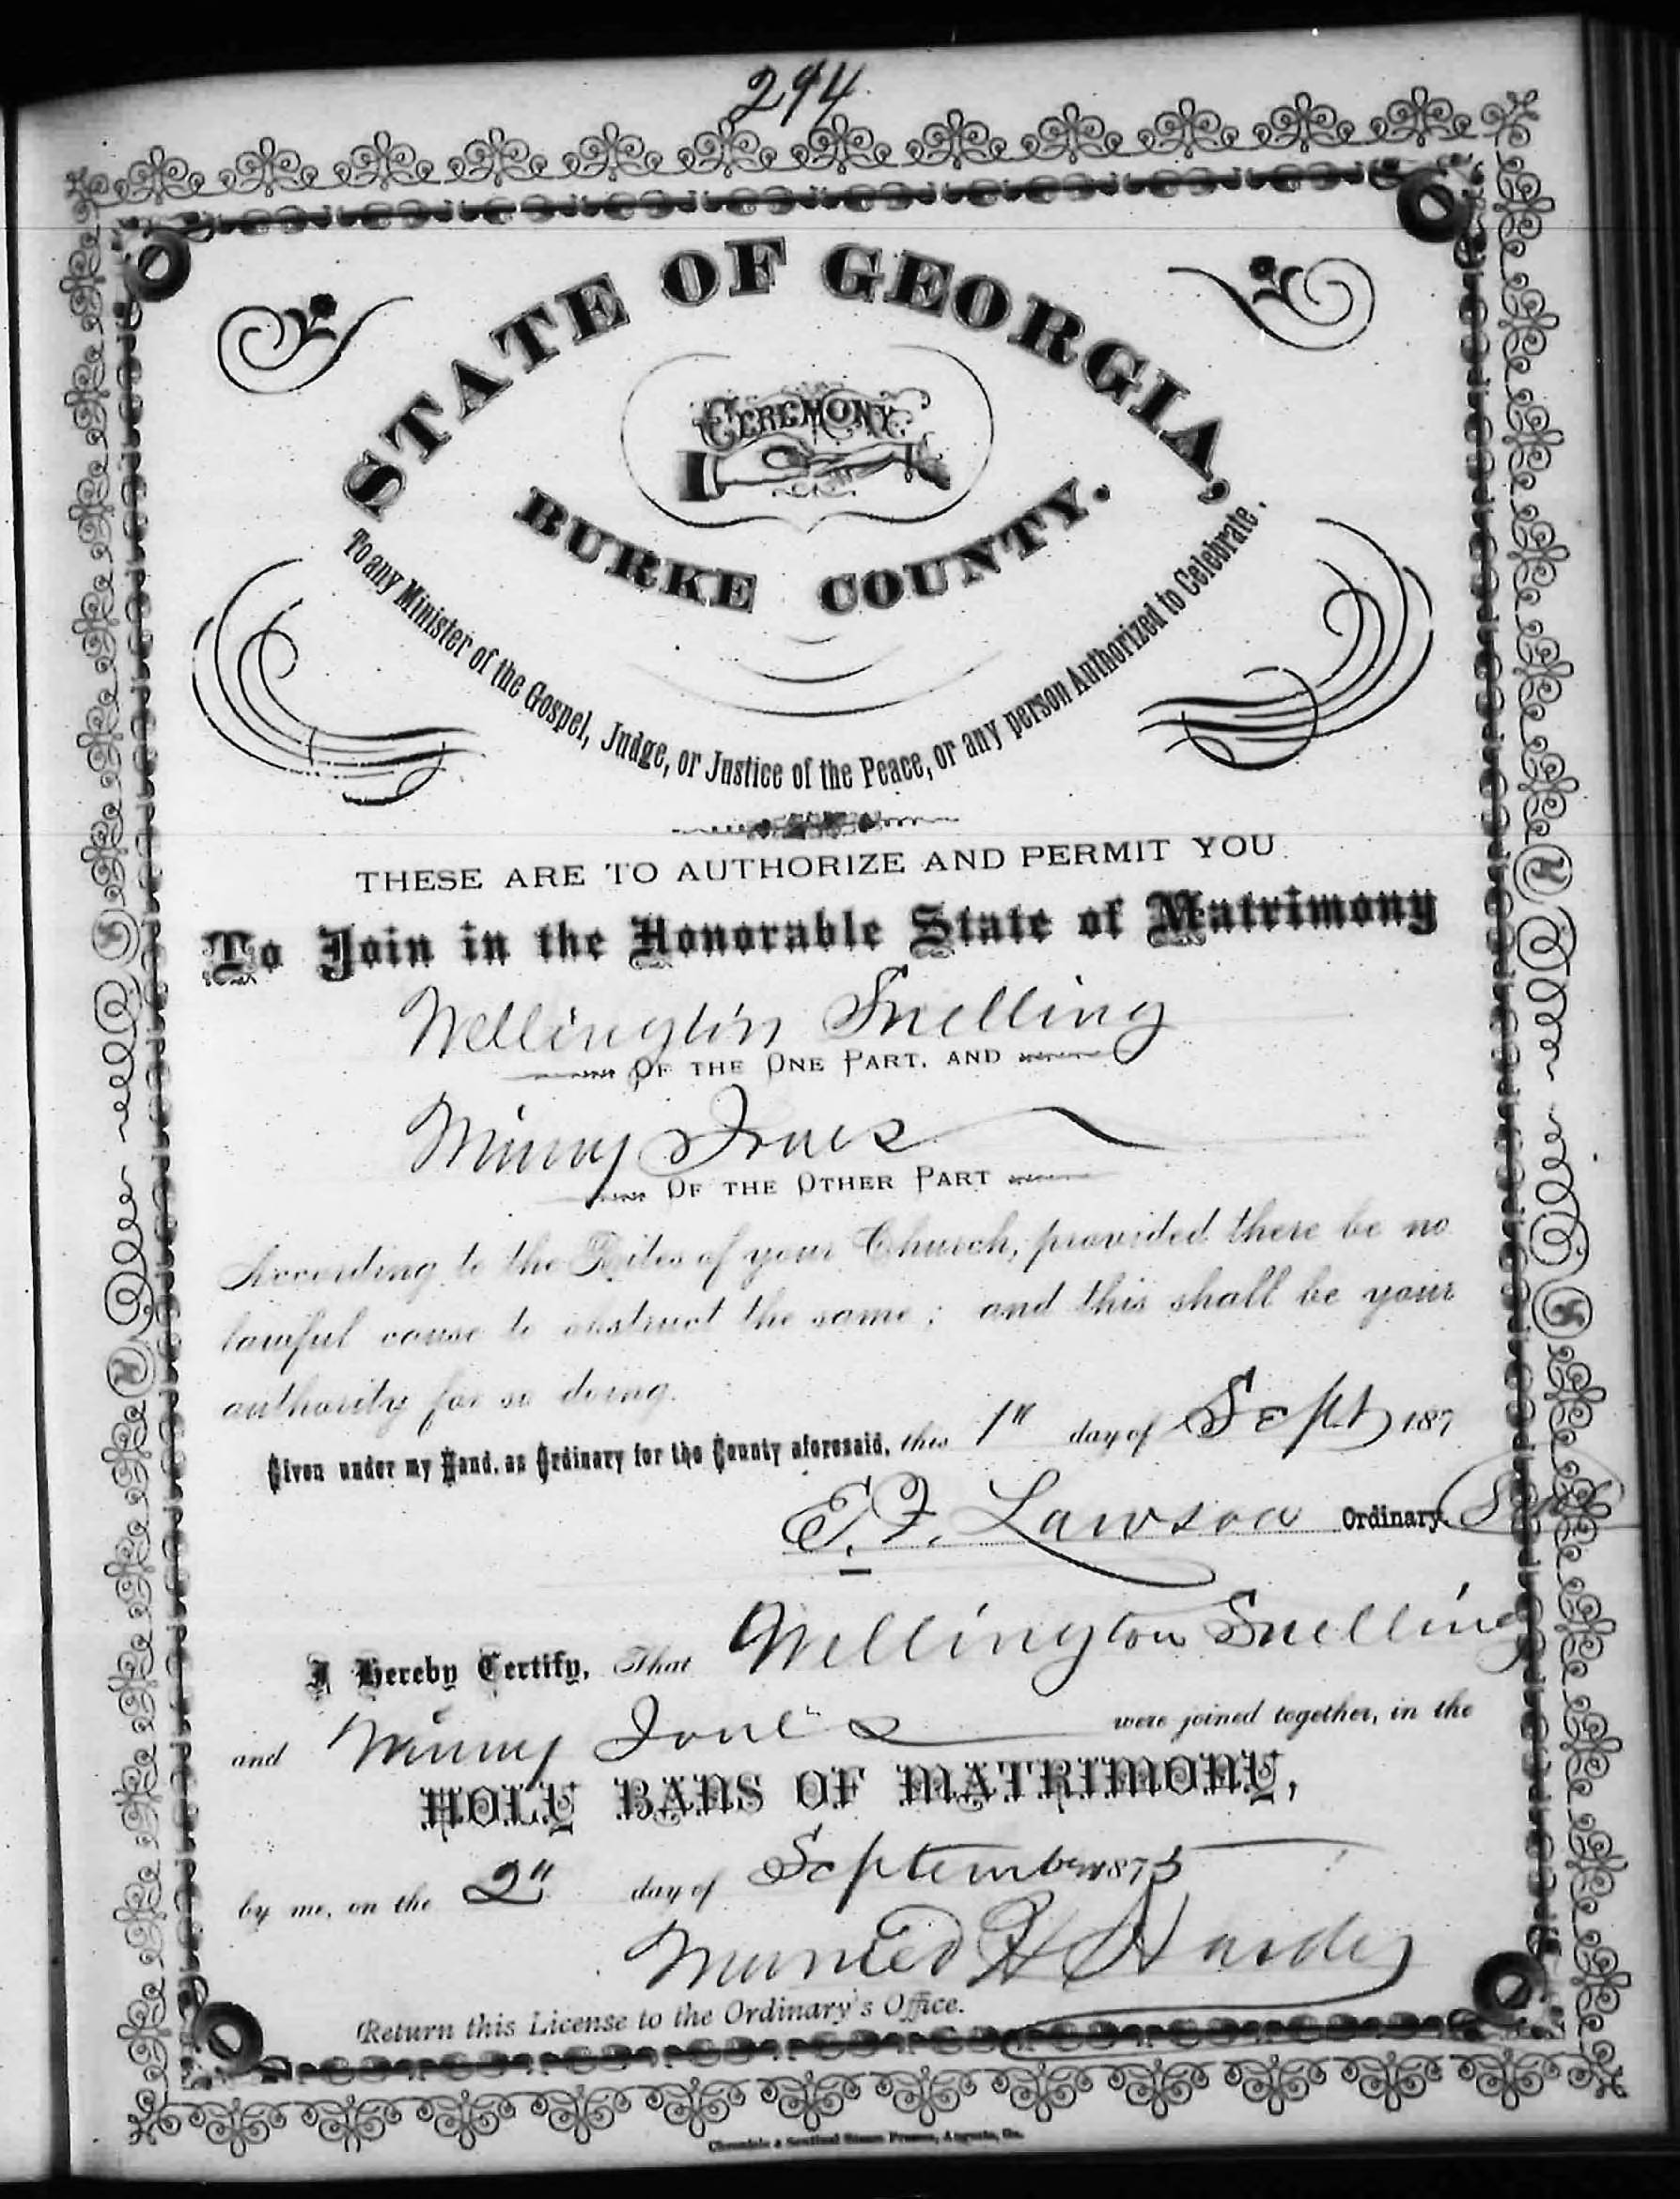 294
STATE OF GEORGIA,
CEREMONY
BURKE COUNTY.
To any Minister of the Gospel, Judge, or Justice of the Peace, or any person Authorized to Celebrate.
THESE ARE TO AUTHORIZE AND PERMIT YOU
To Join in the Honorable State of Matrimony
Wellington Snelling
OF THE ONE PART, AND
Minny Jones
OF THE OTHER PART
According to the Rites of your Church, provided there be no
lawful cause to obstruct the same; and this shall be your
authority for so doing.
Given under my Hand, as Ordinary for the County aforesaid, this 1st day of Sept 187
E. F. Lawson Ordinary. Seal
I Hereby Certify, That Wellington Snelling
and Minny Jones were joined together, in the
HOLY BANS OF MATRIMONY,
by me, on the 2" day of September 1875
Married H
Return this License to the Ordinary's Office.
Chronicle & Sentinel Steam Presses, Augusta, Ga.